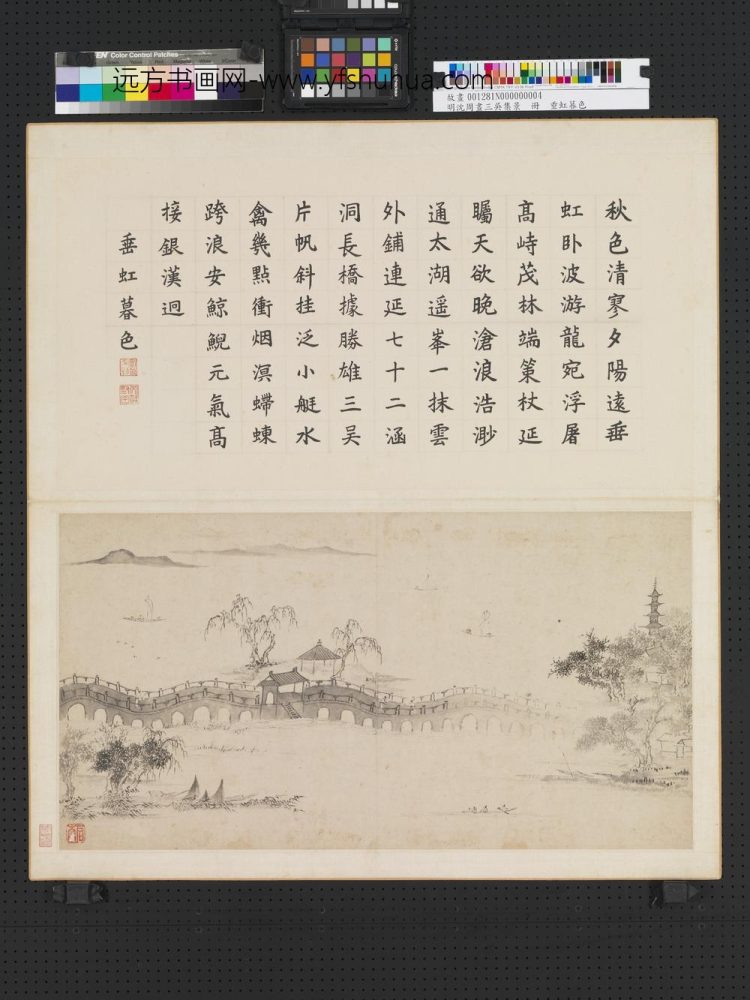 Color Control Patches
远方书画网-www.yfshuhua.com
故畫 001281N000000004
明沈周畫三吳集景 冊 垂虹暮色
秋色清寥夕陽遠垂
虹卧波游龍宛浮屠
髙峙茂林端策杖延
矚天欲晚滄浪浩渺
通太湖遥峯一抹雲
外鋪連延七十二涵
洞長橋據勝雄三吴
片帆斜挂泛小艇水
禽幾點衝烟溟螮蝀
跨浪安鯨鯢元氣髙
接銀漢迥
垂虹暮色